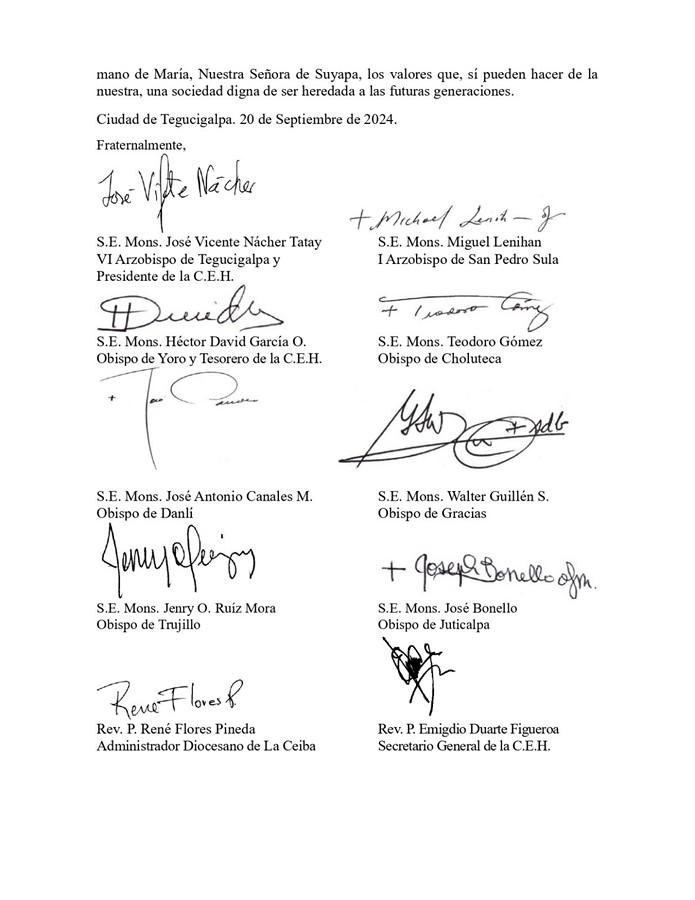 mano de María, Nuestra Señora de Suyapa, los valores que, sí pueden hacer de la
nuestra, una sociedad digna de ser heredada a las futuras generaciones.
Ciudad de Tegucigalpa. 20 de Septiembre de 2024.
Fraternalmente,
José Vijte Nácher
+ Michael Lenih
S.E. Mons. José Vicente Nácher Tatay
VI Arzobispo de Tegucigalpa y
Presidente de la C.E.H.
S.E. Mons. Miguel Lenihan
I Arzobispo de San Pedro Sula
+ Teodoro Gómez
S.E. Mons. Héctor David García O.
Obispo de Yoro y Tesorero de la C.E.H.
S.E. Mons. Teodoro Gómez
Obispo de Choluteca
+ sdb
S.E. Mons. José Antonio Canales M.
Obispo de Danlí
S.E. Mons. Walter Guillén S.
Obispo de Gracias
Jenry
+ Joseph Bonello ofm.
S.E. Mons. Jenry O. Ruíz Mora
Obispo de Trujillo
S.E. Mons. José Bonello
Obispo de Juticalpa
René Flores P.
Rev. P. René Flores Pineda
Administrador Diocesano de La Ceiba
Rev. P. Emigdio Duarte Figueroa
Secretario General de la C.E.H.